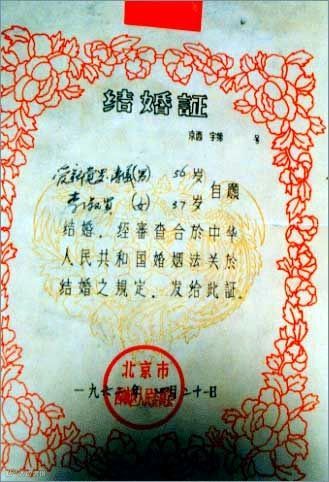 结婚証
京西 字第 号
爱新觉罗·溥仪(男) 56岁
李淑贤(女) 37岁
自願
结婚，经審查合於中华
人民共和国婚姻法关於
结婚之規定，发给此証。
北京市
人民
一九六 年 月二十一日